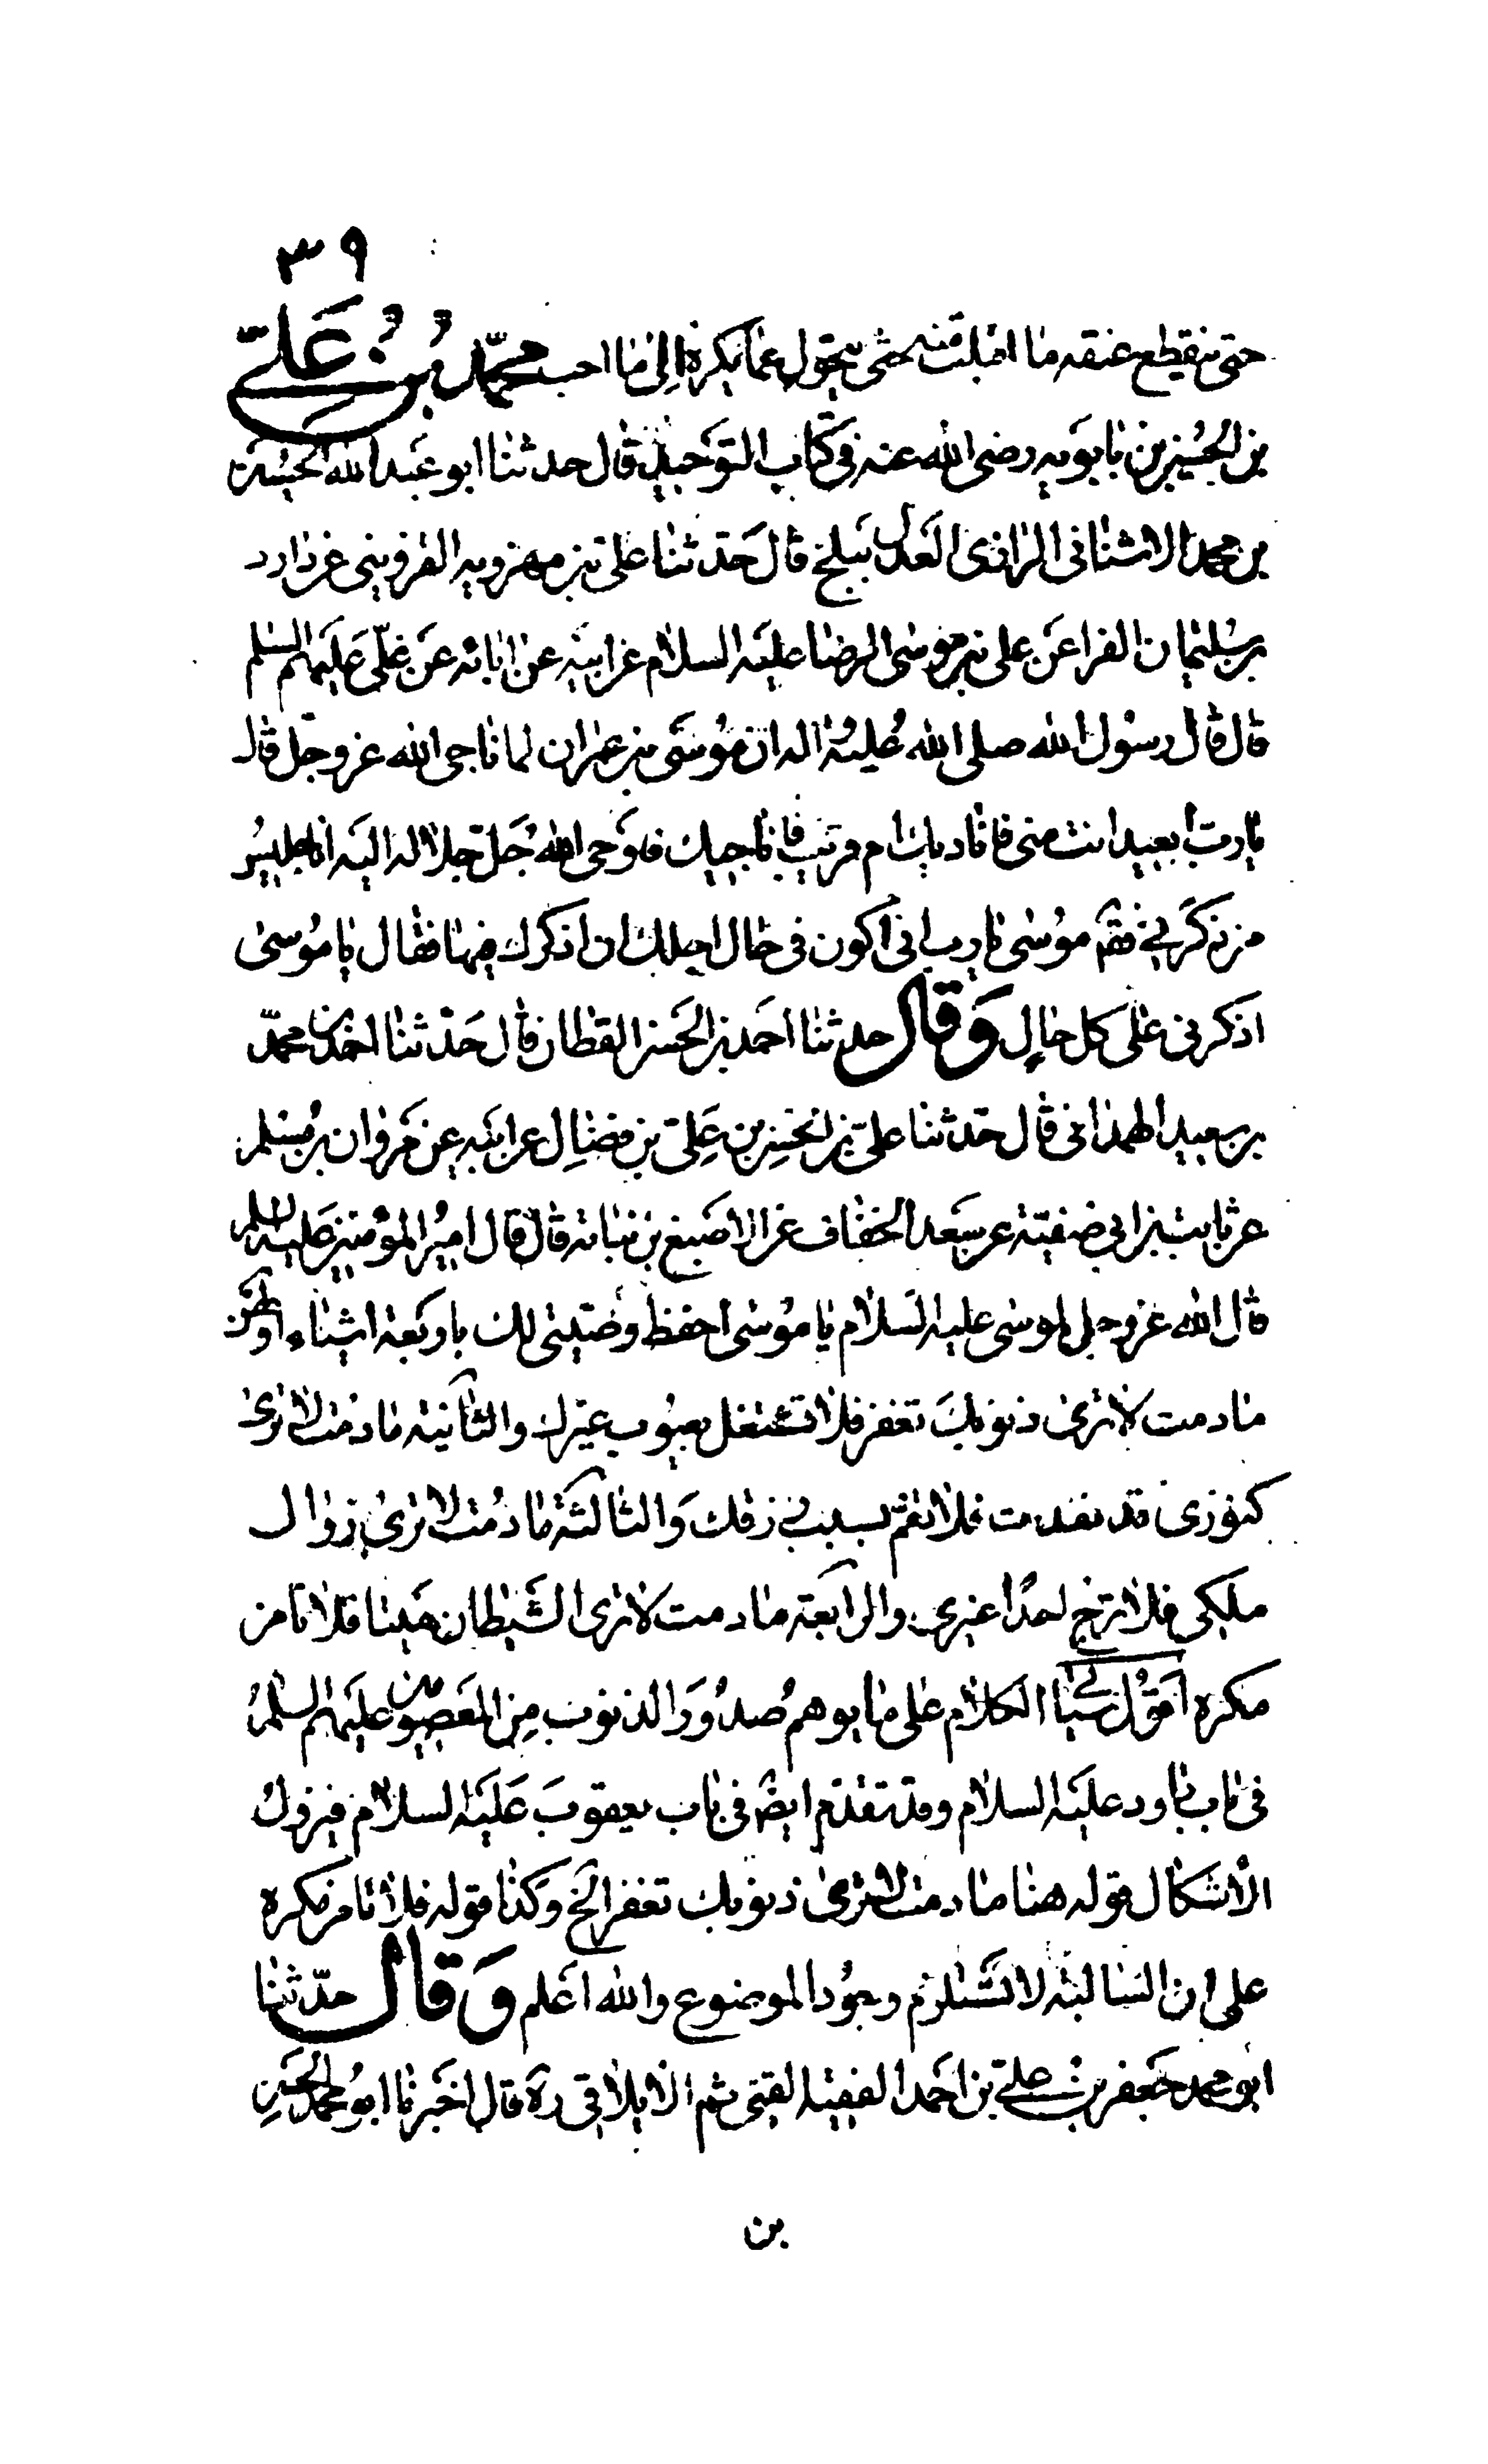 ٣٩
حتى ينقطع عنقه ما اقبلت منه حتى يتحول عما يكره الى ما احب محمّد بن علي
بن الحسين بن بابويه رضى الله عنه فى كتاب التوحيد قال حدثنا ابو عبد الله الحسين
بن محمد الاشنانى الرازى العدل ببلخ قال حدثنا على بن مهرويه القزوينى عن داود
بن سليمان الفرا عن على بن موسى الرضا عليه السلام عن ابيه عن ابائه عن علىّ عليهم السلم
قال قال رسول الله صلى الله عليه واله ان موسى بن عمران لما ناجى الله عز وجل قال
يا رب ابعيد انت منى فاناديك ام قريب فاناجيك فاوحى الله جل جلاله اليه انا جليس
من ذكرنى فقم موسى يا رب انى اكون فى حال اجلك ان اذكرك فيها فقال يا موسى
اذكرنى على كل حال وقال حدثنا احمد بن الحسن القطان قال حدثنا احمد بن محمّد
بن سعيد الهمدانى قال حدثنا على بن الحسن بن على بن فضال عن ابيه عن مروان بن مسلم
عن ثابت بن ابى صفية عن سعد الخفاف عن الاصبغ بن نباته قال قال امير المؤمنين عليه السلم
قال الله عز وجل لموسى عليه السلام يا موسى احفظ وصيتى لك باربعة اشياء اولهن
ما دمت لا ترى ذنوبك تغفر فلا تشتغل بعيوب غيرك والثانية ما دمت لا ترى
كنوزى قد نفدت فلا تغتم بسبب رزقك والثالثة ما دمت لا ترى زوال
ملكى فلا ترج احدًا غيرى والرابعة ما دمت لا ترى الشيطان ميتا فلا تامن
مكره اقول سياتى الكلام على ما يوهم صدور الذنوب من المعصومين عليهم السلم
فى باب داود عليه السلام وقد تقدم ايضًا فى باب يعقوب عليه السلام فيزول
الاشكال قوله هنا ما دمت لا ترى ذنوبك تغفر الخ وكذا قوله فلا تامن مكره
على ان السالبة لا تستلزم وجود الموضوع والله اعلم وقال حدّثنا
ابو محمد جعفر بن على بن احمد الفقيه القمى ثم الايلاقى ره قال اخبرنا ابو محمد الحسن
بن